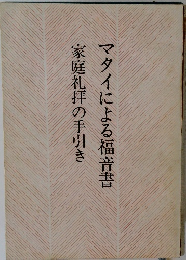 マタイによる福音書
家庭礼拝の手引き